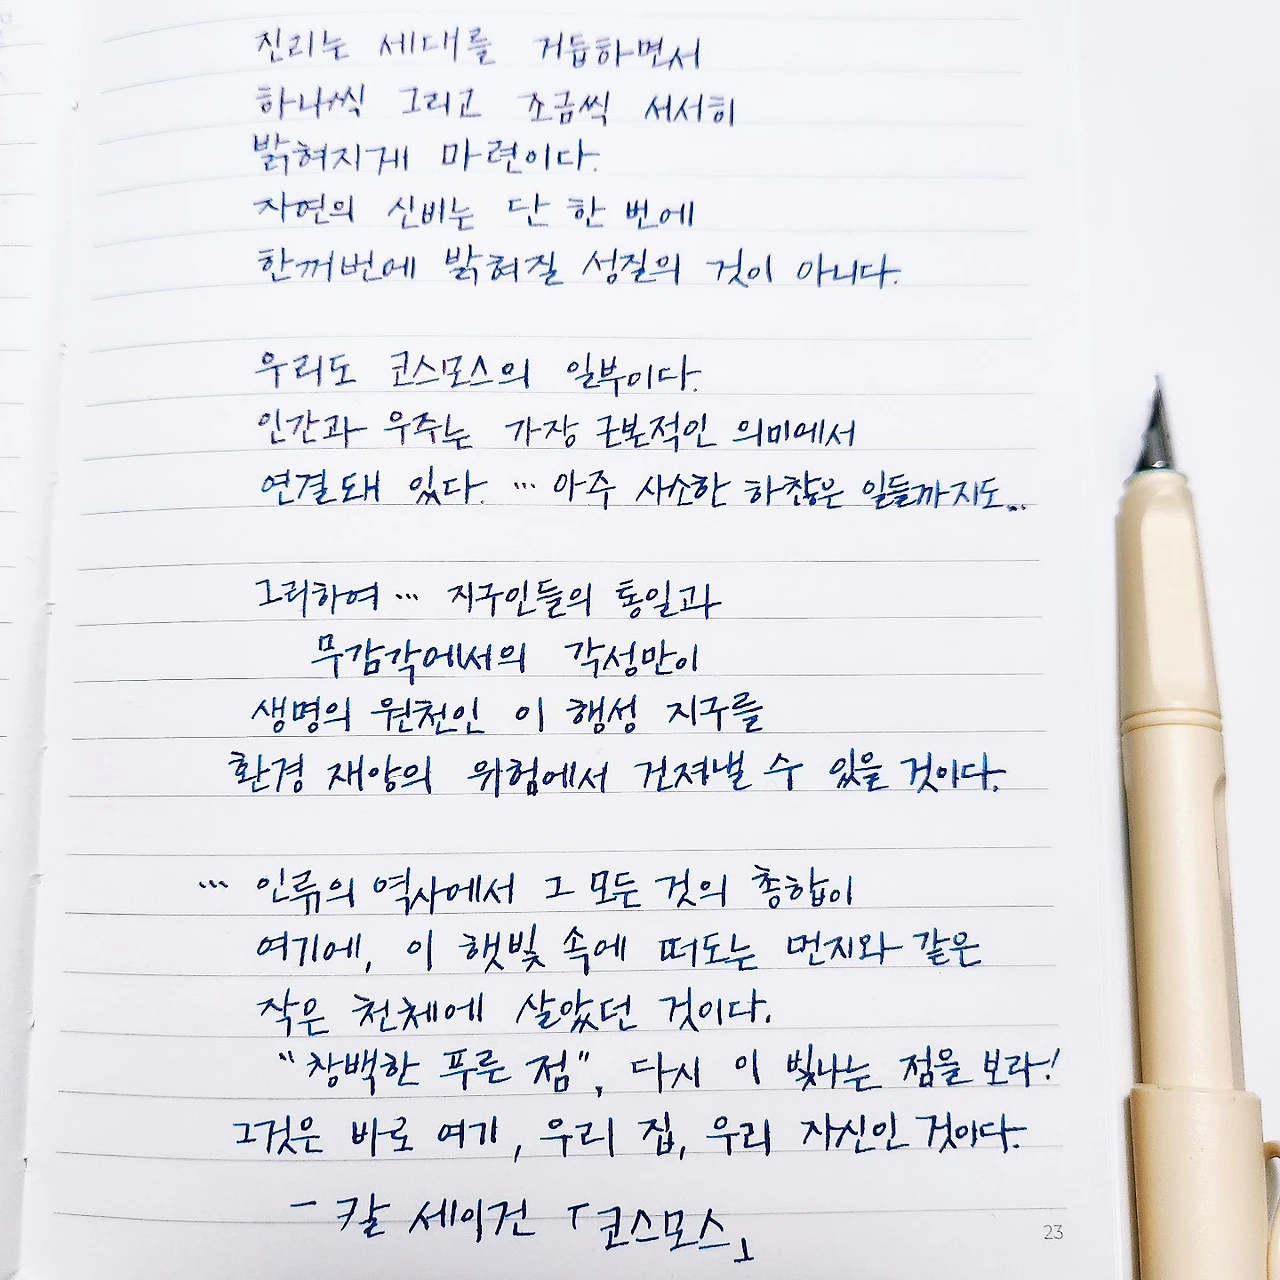 진리는 세대를 거듭하면서
하나씩 그리고 조금씩 서서히
밝혀지게 마련이다.
자연의 신비는 단 한 번에
한꺼번에 밝혀질 성질의 것이 아니다.
우리도 코스모스의 일부이다.
인간과 우주는 가장 근본적인 의미에서
연결돼 있다. … 아주 사소한 하찮은 일들까지도...
그리하여 … 지구인들의 통일과
무감각에서의 각성만이
생명의 원천인 이 행성 지구를
환경 재앙의 위험에서 건져낼 수 있을 것이다.
… 인류의 역사에서 그 모든 것의 총합이
여기에, 이 햇빛 속에 떠도는 먼지와 같은
작은 천체에 살았던 것이다.
"창백한 푸른 점", 다시 이 빛나는 점을 보라!
그것은 바로 여기, 우리 집, 우리 자신인 것이다.
- 칼 세이건 「코스모스」
23